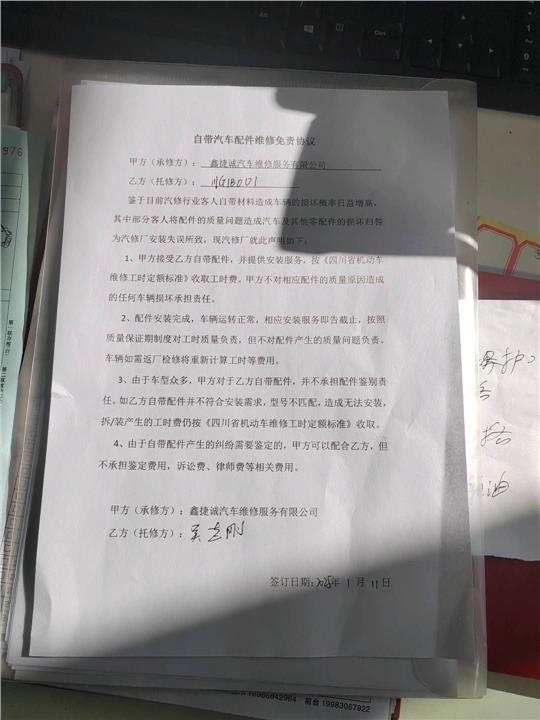 自带汽车配件维修免责协议
甲方（承修方）：鑫捷诚汽车维修服务有限公司
乙方（托修方）：川G1B001
鉴于目前汽修行业客人自带材料造成车辆的损坏概率日益增高，
其中部分客人将配件的质量问题造成汽车及其他零配件的损坏归咎
为汽修厂安装失误所致，现汽修厂就此声明如下：
1、甲方接受乙方自带配件，并提供安装服务，按《四川省机动车
维修工时定额标准》收取工时费。甲方不对相应配件的质量原因造成
的任何车辆损坏承担责任。
2、配件安装完成，车辆运转正常，相应安装服务即告截止，按照
质量保证期制度对工时质量负责，但不对配件产生的质量问题负责。
车辆如需返厂检修将重新计算工时等费用。
3、由于车型众多，甲方对于乙方自带配件，并不承担配件鉴别责
任。如乙方自带配件并不符合安装需求，型号不匹配，造成无法安装，
拆/装产生的工时费仍按《四川省机动车维修工时定额标准》收取。
4、由于自带配件产生的纠纷需要鉴定的，甲方可以配合乙方，但
不承担鉴定费用，诉讼费、律师费等相关费用。
甲方（承修方）：鑫捷诚汽车维修服务有限公司
乙方（托修方）：吴志刚
签订日期：2025年1月11日
976
第一联存根（白）
护
油
前台 19983067922